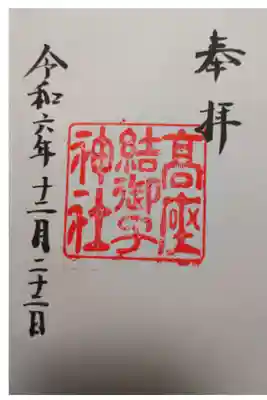 奉拝
髙座
結御子
神社
令和六年十二月二十二日